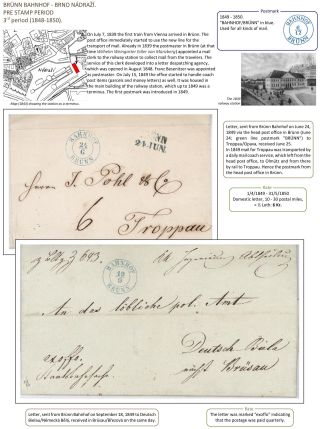 BRÜNN BAHNHOF - BRNO NÁDRAŽÍ.
PRE STAMP PERIOD
3rd period (1848-1850).
On July 7, 1839 the first train from Vienna arrived in Brünn. The
post office immediately started to use the new line for the
transport of mail. Already in 1839 the postmaster in Brünn (at that
time Wilhelm Weingarter Edler von Münzberg) appointed a mail
clerk to the railway station to collect mail from the travelers. The
service of this clerk developed into a letter despatching agency,
which was opened in August 1848. Franz Besenbier was appointed
as postmaster. On July 15, 1849 the office started to handle coach
post items (parcels and money letters) as well. It was housed in
the main building of the railway station, which up to 1849 was a
terminus. The first postmark was introduced in 1849.
Map (1843) showing the station as a terminus.
Postmark
1848 - 1850
"BAHNHOF/BRÜNN" in blue.
Used for all kinds of mail.
railway station
BAHNHOF
24
6
BRÜNN
24.JUN.
Herrn J. Pohl & Co
6
Troppau
Letter, sent from Brünn Bahnhof on June 24,
1849 via the head post office in Brünn (June
24; green line postmark "BRÜNN") to
Troppau/Opava, received June 25.
In 1849 mail for Troppau was transported by
a daily mail coach service, which left from the
head post office, to Olmütz and from there
by rail to Troppau. Hence the postmark from
the head post office in Brünn.
Rate
1/4/1849 - 31/5/1850
Domestic letter, 10 - 30 postal miles,
< ½ Loth: 6 Kr.
BAHNHOF
BRÜNN
An das löbliche pol. Amt
Deutsch
exoffo
Brüsau
Letter, sent from Brünn Bahnhof on September 18, 1849 to Deutsch
Bielau/Německá Bělá, received in Brüsau/Březová on the same day.
Rate
The letter was marked "exoffo" indicating
that the postage was paid quarterly.